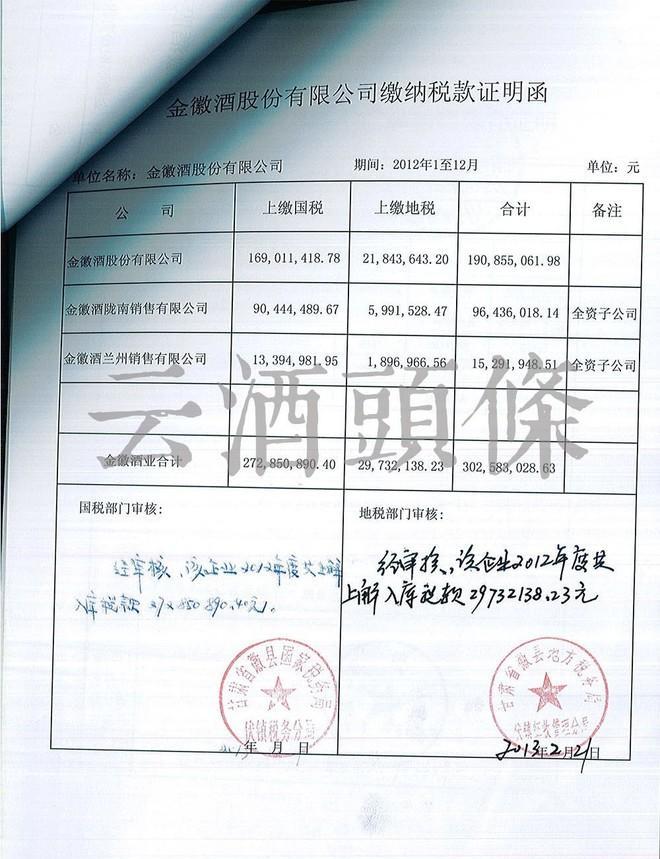 金徽酒股份有限公司缴纳税款证明函
单位名称：金徽酒股份有限公司 期间：2012年1至12月 单位：元
公 司 上缴国税 上缴地税 合计 备注
金徽酒股份有限公司 169,011,418.78 21,843,643.20 190,855,061.98
金徽酒陇南销售有限公司 90,444,489.67 5,991,528.47 96,436,018.14 全资子公司
金徽酒兰州销售有限公司 13,394,981.95 1,896,966.56 15,291,948.51 全资子公司
云酒頭條
金徽酒业合计 272,850,890.40 29,732,138.23 302,583,028.63
国税部门审核：
经审核、该企业2012年度共上解
入库税款272850890.40元。
甘肃省徽县国家税务局
伏镇税务分局
2013年 月 日
地税部门审核：
经审核、该企业2012年度共
上解入库税款29732138.23元
甘肃省徽县地方税务局
2013年2月21日